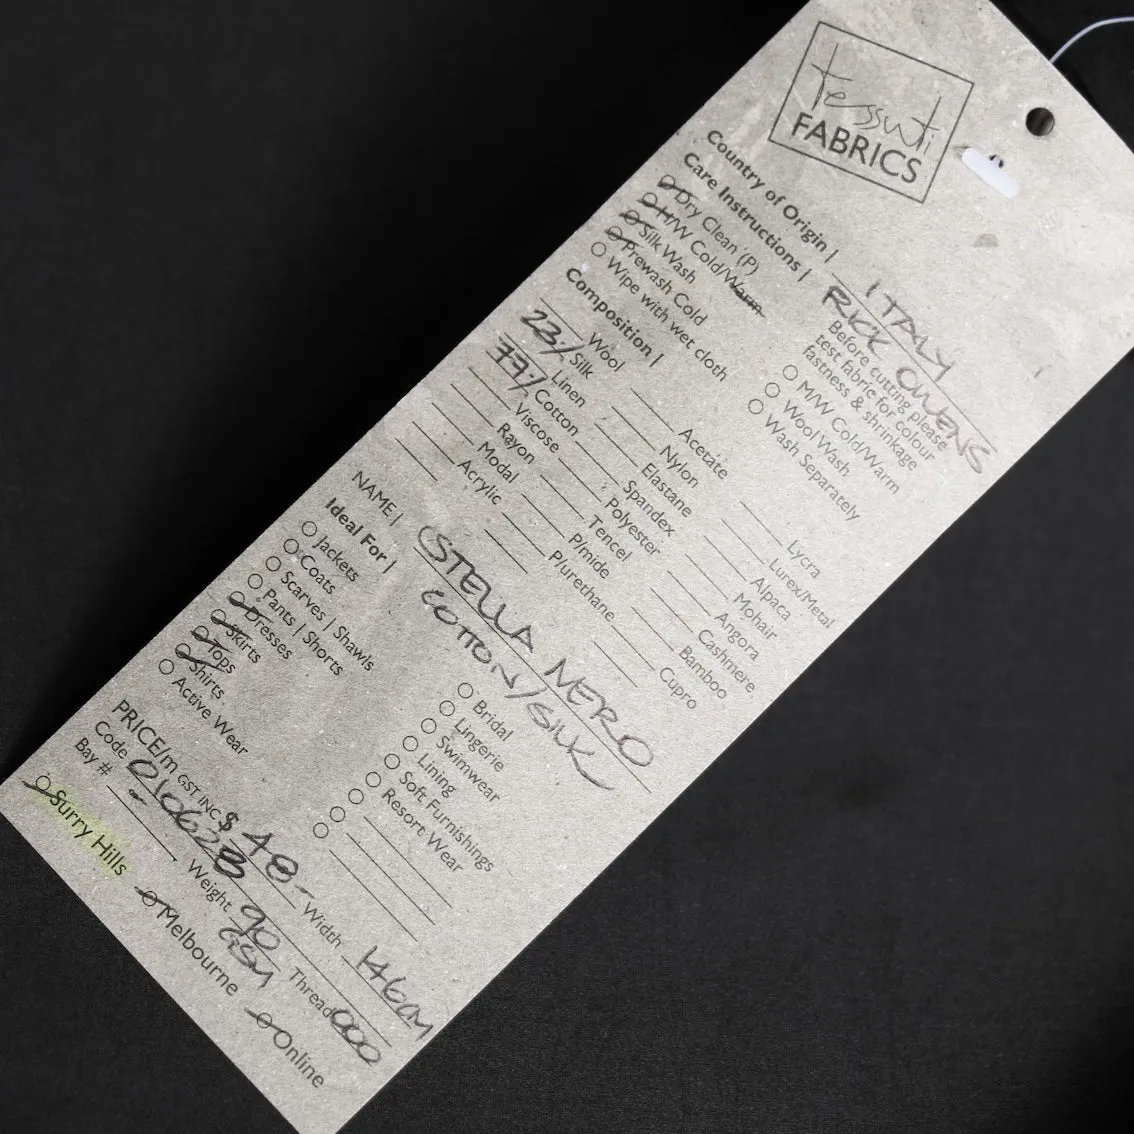 tessuti
FABRICS
Country of Origin | ITALY
Care Instructions | RICK OWENS
Dry Clean (P)
H/W Cold/Warm
Silk Wash
Prewash Cold
Wipe with wet cloth
Before cutting please
test fabric for colour
fastness & shrinkage
M/W Cold/Warm
Wool Wash
Wash Separately
Composition |
Wool
23% Silk
Linen
77% Cotton
Viscose
Rayon
Modal
Acrylic
Acetate
Nylon
Elastane
Spandex
Polyester
Tencel
P/mide
P/urethane
Lycra
Lurex/Metal
Alpaca
Mohair
Angora
Cashmere
Bamboo
Cupro
NAME | STELLA NERO
COTTON/SILK
Ideal For |
Jackets
Coats
Scarves | Shawls
Pants | Shorts
Dresses
Skirts
Tops
Shirts
Active Wear
Bridal
Lingerie
Swimwear
Lining
Soft Furnishings
Resort Wear
PRICE/m GST INC $ 48- Width 146CM
Code 010628 Weight 90 GSM Thread 000
Bay # -
Surry Hills Melbourne Online